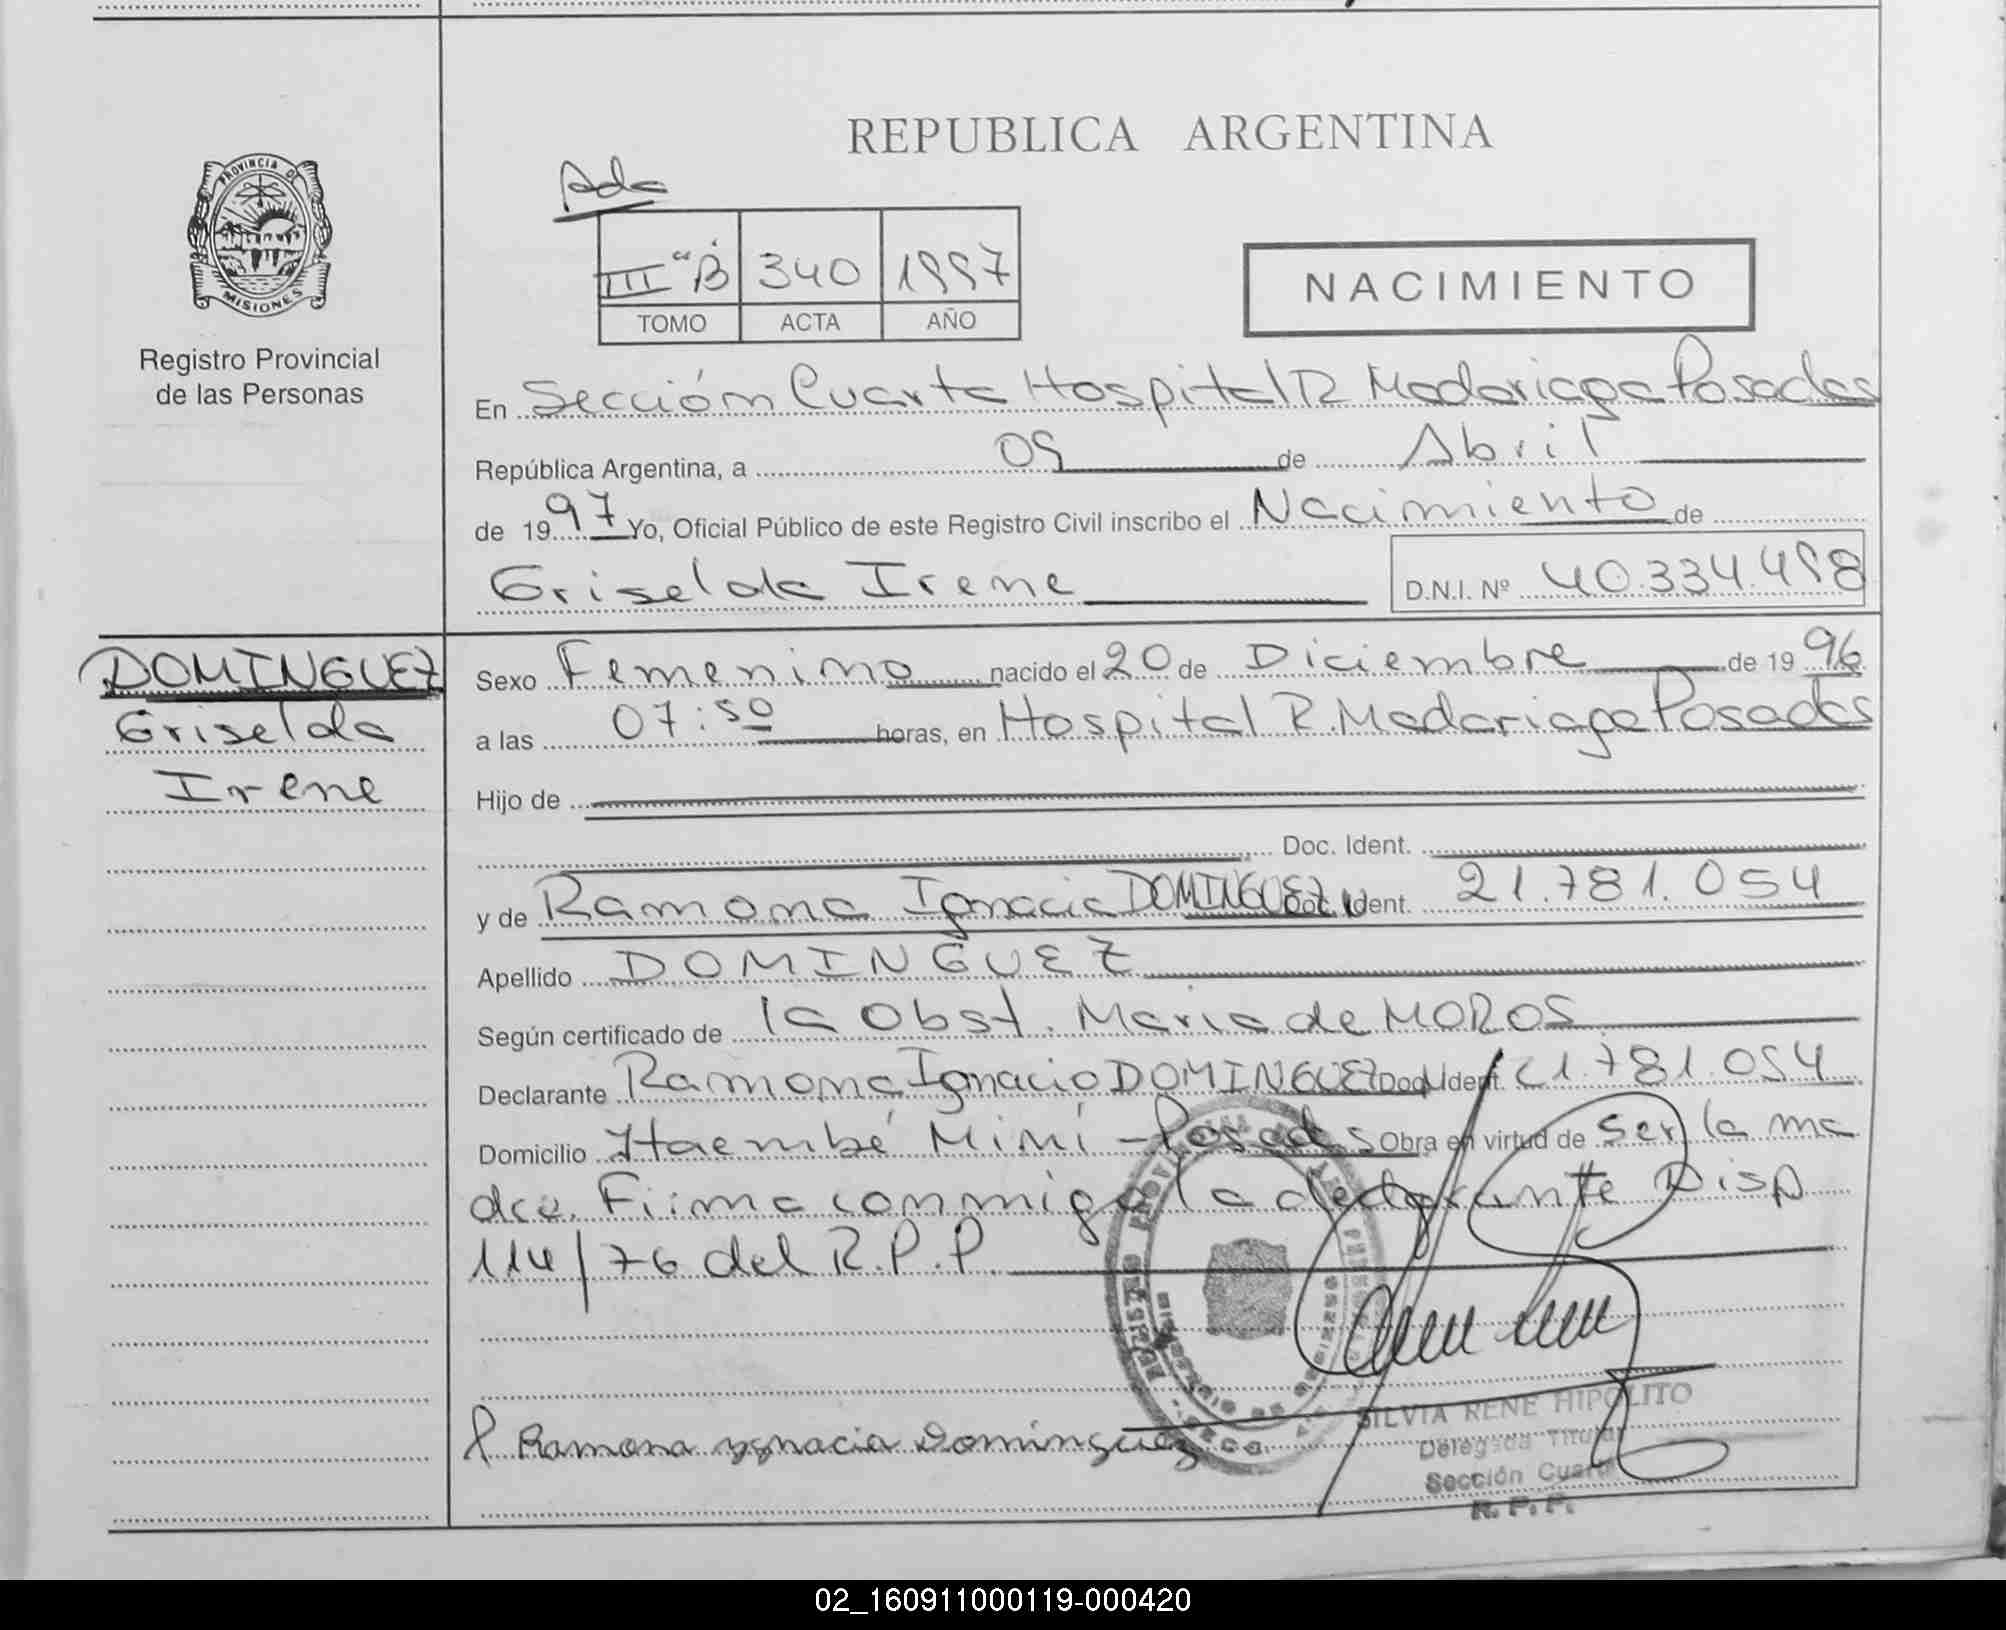 PROVINCIA DE
MISIONES
Registro Provincial
de las Personas
REPUBLICA ARGENTINA
Ada
III "B 340 1997
TOMO ACTA AÑO
NACIMIENTO
En Sección Cuarta Hospital R Madariaga Posadas
República Argentina, a 09 de Abril
de 1997 Yo, Oficial Público de este Registro Civil inscribo el Nacimiento de
Griselda Irene D.N.I. Nº 40.334.498
DOMINGUEZ
Griselda
Irene
Sexo Femenino nacido el 20 de Diciembre de 1996
a las 07:50 horas, en Hospital R. Madariaga Posadas
Hijo de
Doc. Ident.
y de Ramona Ignacia DOMINGUEZ Doc. Ident. 21.781.054
Apellido DOMINGUEZ
Según certificado de la Obst. Maria de MOROS
Declarante Ramona Ignacia DOMINGUEZ Doc. Ident. 21.781.054
Domicilio Itaembé Miní - Posadas Obra en virtud de ser la ma
dre. Firma conmigo la declarante Disp
114/76 del R.P.P
Ramona ygnacia Dominguez
SILVIA RENE HIPOLITO
Delegada Titular
Sección Cuarta
R. P. P.
02_160911000119-000420